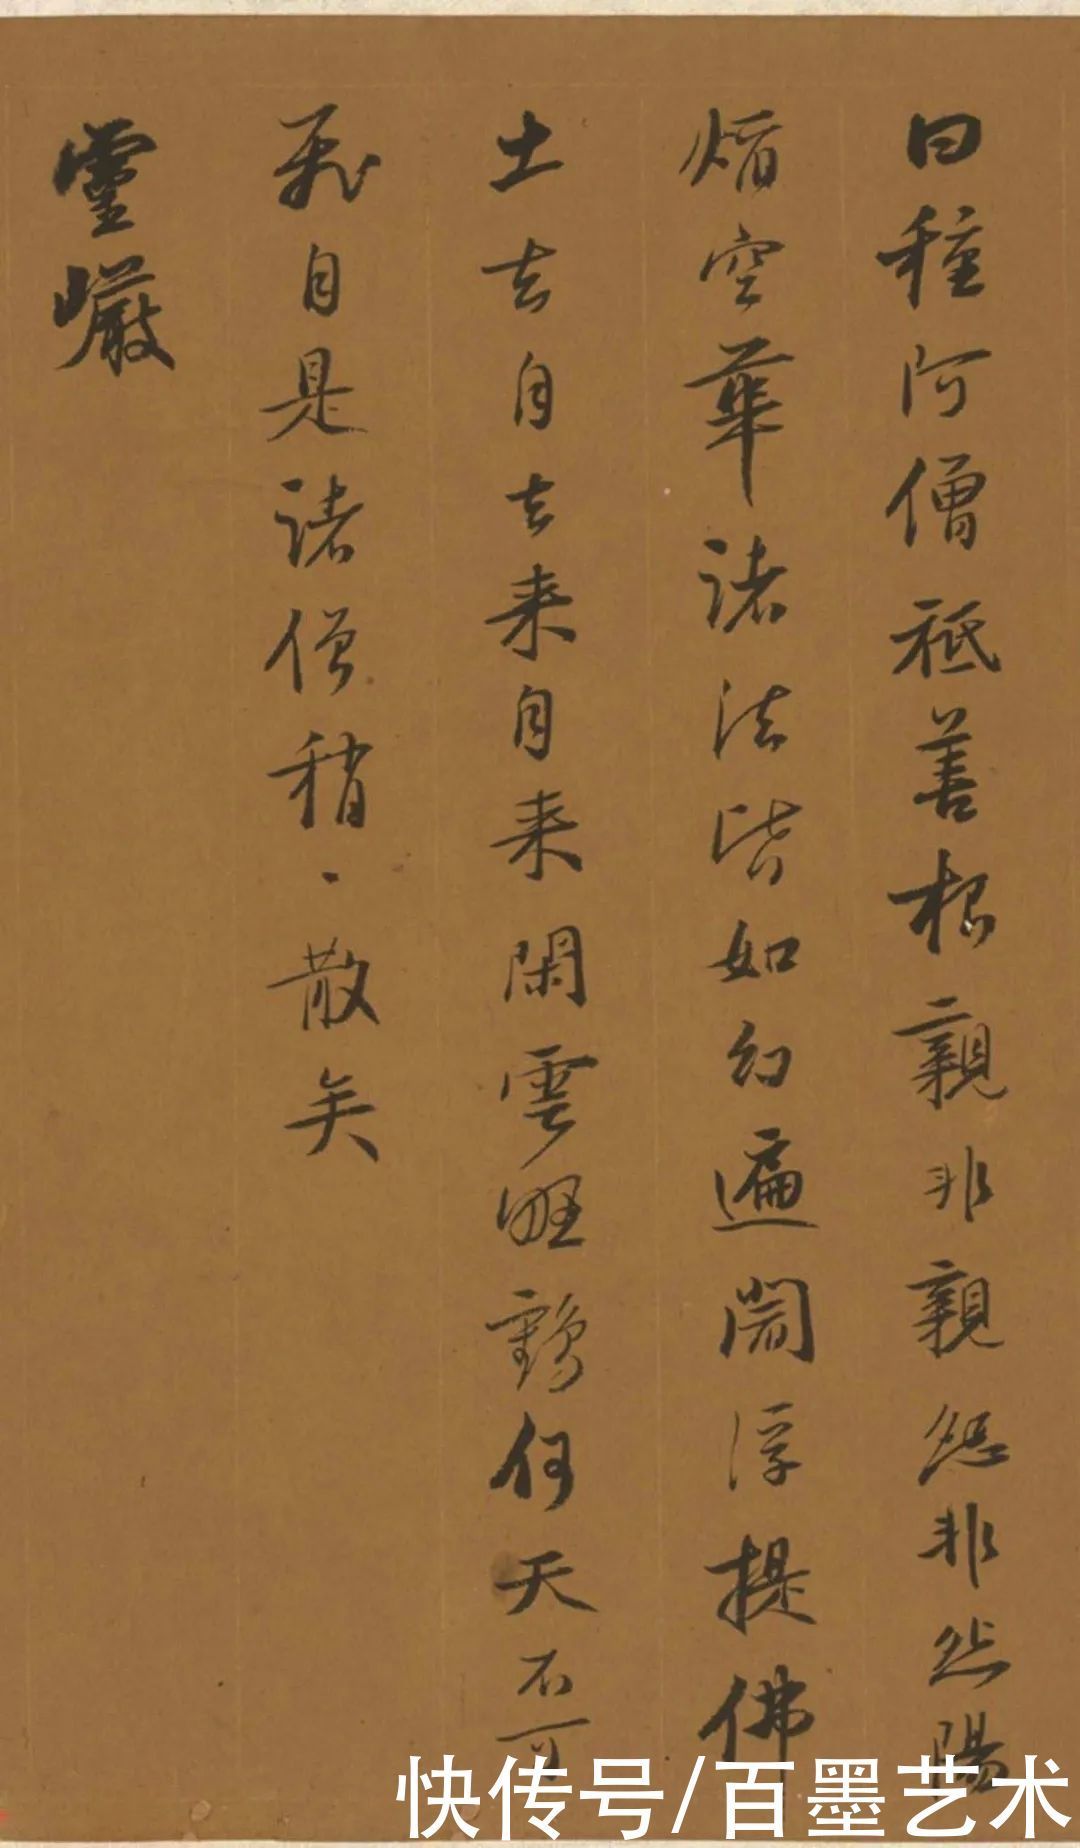 曰種阿僧祇善根親非親怨非怨陽
焰空華諸法皆如幻遍閻浮提佛
土去自去来自来閑雲野鶴何天不可
飛自是諸僧稍、散矣
靈巗
快传号/百墨艺术